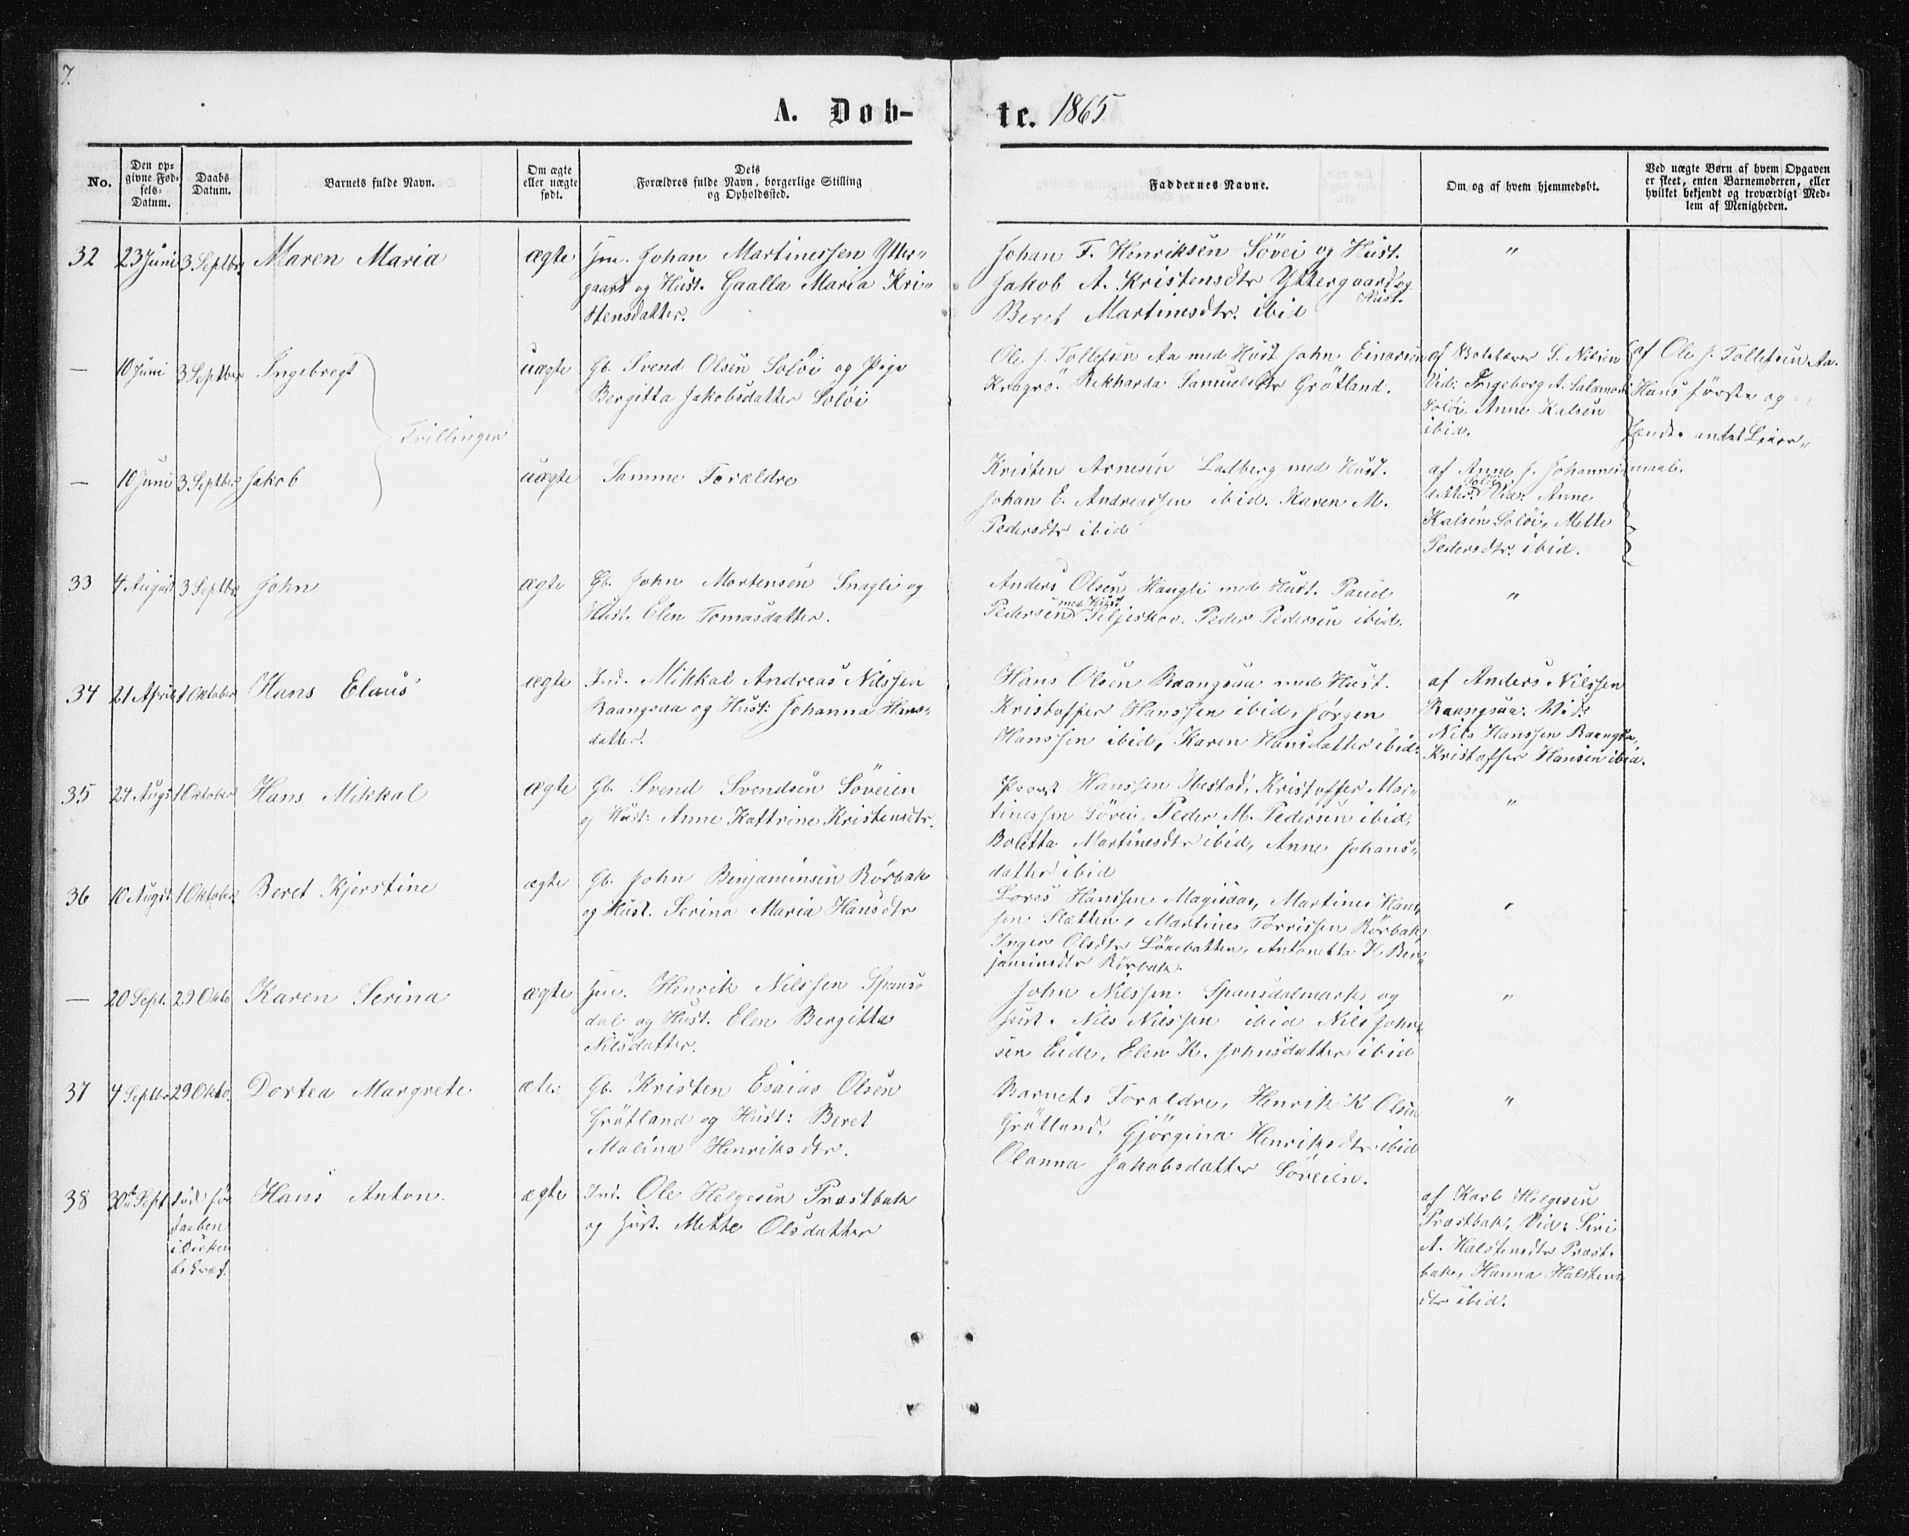 7.
A. Døb-
te. 1865
No.
Den op-
givne Fød-
sels-
Datum.
Daabs
Datum.
Barnets fulde Navn.
Om ægte
eller uægte
født.
Dets
Forældres fulde Navn, borgerlige Stilling
og Opholdssted.
Faddernes Navne.
Om og af hvem hjemmedøbt.
Ved uægte Børn af hvem Opgaven
er skeet, enten Barnemoderen, eller
hvilket bekjendt og troværdigt Med-
lem af Menigheden.
32 23 Juni 3 Septbr Maren Maria ægte Hm. Johan Martinessen Ytter-
gaard og Hust. Gaalla Maria Kri-
stensdatter.
Johan F. Henriksen Søvei og Hust.
Jakob A. Kristensdtr Yttergaard og
Hust.
Beret Martinesdtr. ibid
"
— 10 Juni 3 Septbr Ingebregt uægte Gb. Svend Olsen Soløi og Pige
Bergitta Jakobsdatter Soløi
Tvillinger
Ole J. Tollefsen Aa med Hust John Einarsen
Kragrø. Rekharda Samuelsdtr Grøtland.
af S. Nilsen
Vid: Ingeborg A. Salamons
Soløi. Anne Kalsen
ibid.
af Ole J. Tollefsen Aa.
Hans første og
andet Leier-
maal.
— 10 Juni 3 Septbr Jakob uægte Samme Forældre
Kristen Arnesen Ladberg med Hust.
Johan E. Andreassen ibid. Karen M.
Pedersdtr ibid
af Anne J. Johannes-
datter Soløi. Vid: Anne
Kalsen Soløi, Mette
Pedersdtr. ibid.
33 4 August 3 Septbr John ægte Gb. John Mortensen Snagli og
Hust. Elen Tomasdatter.
Anders Olsen Haugli med Hust. Paul
Pedersen med Hust. Piljeskov. Peder Pedersen ibid.
"
34 21 April 1 Oktober Hans Elaus ægte Ind. Mikkal Andreas Nilssen
Raangsaa og Hust: Johanna Hans-
datter.
Hans Olsen Raangsaa med Hust.
Kristoffer Hanssen ibid, Jørgen
Hanssen ibid, Karen Hansdatter ibid.
af Anders Nilssen
Raangsaa. Vid:
Nils Hanssen Raangsa,
Kristoffer Hansen ibid.
35 24 Augs 1 Oktober Hans Mikkal ægte Gb. Svend Svendsen Søveien
og Hust: Anne Kattrine Kristensdtr.
Hanssen Mestad, Kristoffer Mar-
tinessen Søvei, Peder M. Pedersen ibid,
Boletta Martinesdtr ibid, Anne Johans-
datter ibid
"
36 10 Augst 1 Oktober Beret Kjerstine ægte Gb. John Benjaminsen Rørbak
og Hust. Serina Maria Hansdtr
Lores Hanssen Magisdae, Martines Hans-
sen Sletten, Martines Torrissen Rørbak,
Inger Olsdtr Lønebatten, Antonetta K. Ben-
jaminsdtr Rørbak.
"
— 20 Sept. 29 Okto Karen Serina ægte Hm. Henrik Nilssen Spans-
dal og Hust. Elen Bergitta
Nilsdatter.
John Nilssen Spansdalmark og
Hust. Nils Nilssen ibid Nils John-
sen Eide, Elen K. Johnsdatter ibid
"
37 4 Septbr 29 Okto. Dortea Margrete Gb. Kristen Esaias Olsen
Grøtland og Hust: Beret
Malina Henriksdtr.
Barnets Forældre, Henrik K Olsen
Grøtland. Gjørgina Henriksdtr ibid
Olanna Jakobsdatter Søveien.
"
38 30te Sept død før
Daaben
i Kirken
bekræf.
Hans Anton. ægte Ind. Ole Helgesen Prastbak
og Hust. Mette Olsdatter
af Karb Helgesen
Prastbak, Vid: Siri
A. Halstensdtr Prast-
bak, Hanna Halstens-
dtr ibid.